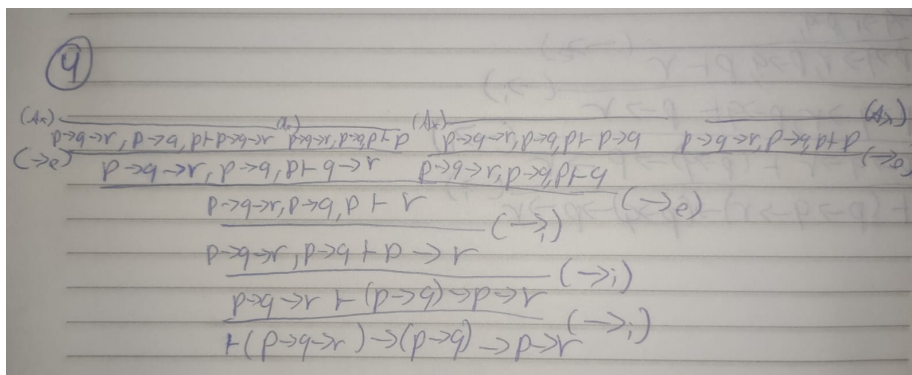 4
(Ax) (Ax) (Ax) (Ax)
p→q→r, p→q, p⊢p→q→r p→q→r, p→q, p⊢p p→q→r, p→q, p⊢p→q p→q→r, p→q, p⊢p
(→e) (→e)
p→q→r, p→q, p⊢q→r p→q→r, p→q, p⊢q
(→e)
p→q→r, p→q, p⊢r
(→i)
p→q→r, p→q⊢p→r
(→i)
p→q→r⊢(p→q)→p→r
(→i)
⊢(p→q→r)→(p→q)→p→r